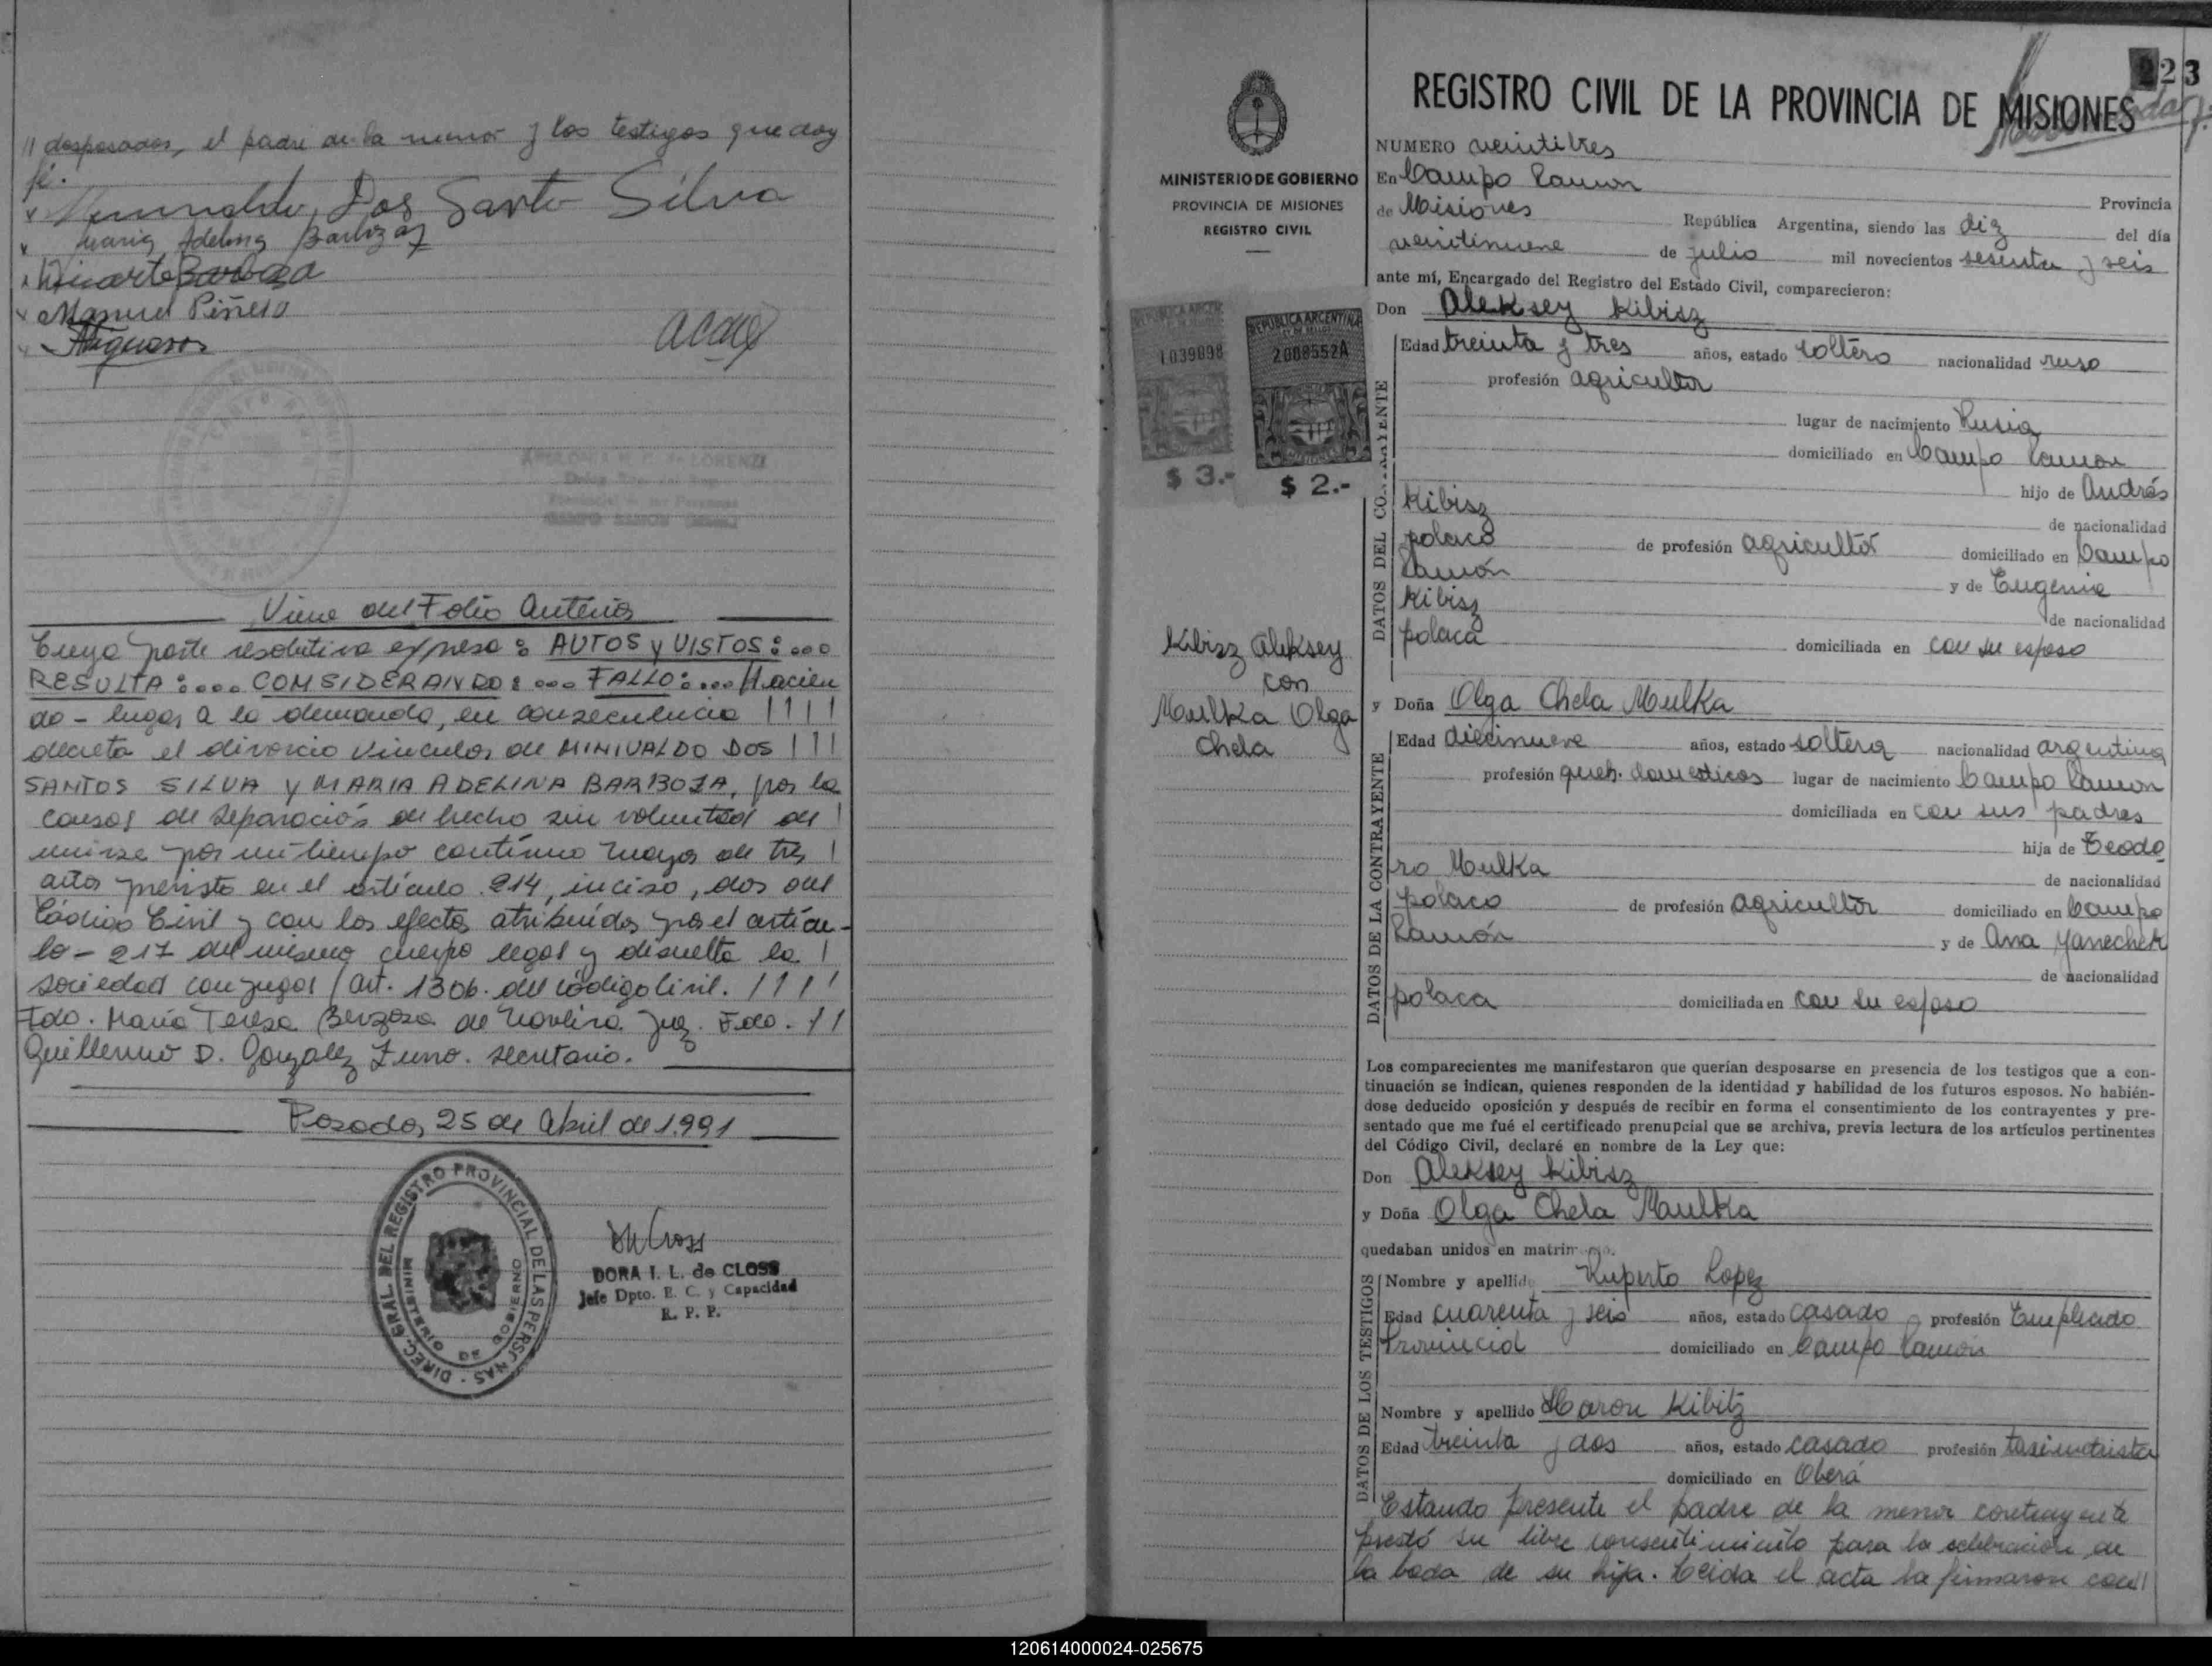 // desposados, el padre de la menor y los testigos que doy
fé.
Dos Santo Silva
Maria Adelina Barboza
Barboza
Manuel Piñeiro
Viene del Folio Anterior
Cuya parte resolutiva expresa: AUTOS y VISTOS:...
RESULTA:.... CONSIDERANDO:... FALLO:... Hacien
do - lugar a la demanda, en consecuencia ! ! ! !
decreta el divorcio vincular de MINIVALDO DOS ! ! !
SANTOS SILVA y MARIA ADELINA BARBOZA, por la
causal de separación de hecho sin voluntad de !
unirse por un tiempo contínuo mayor de tres !
años previsto en el artículo 214, inciso, dos del
Código Civil y con los efectos atribuídos por el artícu-
lo - 217 del mismo cuerpo legal y disuelta la !
sociedad conyugal / Art. 1306. del Código Civil. ! ! ! !
Fdo. María Teresa de Juez. Fdo. ! !
Guillermo D. González Secretario.
Posadas, 25 de Abril de 1.991
DIREC. GRAL. DEL REGISTRO PROVINCIAL DE LAS PERSONAS
MINISTERIO DE GOBIERNO
DORA I. L. de CLOSS
Jefe Dpto. E. C. y Capacidad
R. P. P.
223
REGISTRO CIVIL DE LA PROVINCIA DE MISIONES
MINISTERIO DE GOBIERNO
PROVINCIA DE MISIONES
REGISTRO CIVIL
REPUBLICA ARGENTINA
1039898
2008552A
$ 3.-
$ 2.-
Kibisz Aleksey
con
Maulka Olga
Chela
NUMERO veintitres
En Campo Ramon
Provincia
de Misiones República Argentina, siendo las diz del día
veintinueve de julio mil novecientos sesenta y seis
ante mí, Encargado del Registro del Estado Civil, comparecieron:
Don Aleksey Kibisz
DATOS DEL CONTRAYENTE
Edad treinta y tres años, estado soltero nacionalidad ruso
profesión agricultor
lugar de nacimiento Rusia
domiciliado en Campo Ramon
hijo de Andrés
Kibisz
de nacionalidad
polaco de profesión agricultor domiciliado en Campo
Ramón
y de Eugenia
Kibisz
de nacionalidad
polaca domiciliada en con su esposo
y Doña Olga Chela Mulka
DATOS DE LA CONTRAYENTE
Edad diecinueve años, estado soltera nacionalidad argentina
profesión queh. domesticos lugar de nacimiento Campo Ramon
domiciliada en con sus padres
hija de Teodo
ro Mulka
de nacionalidad
polaco de profesión agricultor domiciliado en Campo
Ramón y de Ana Yanechek
de nacionalidad
polaca domiciliada en con su esposo
Los comparecientes me manifestaron que querían desposarse en presencia de los testigos que a con-
tinuación se indican, quienes responden de la identidad y habilidad de los futuros esposos. No habién-
dose deducido oposición y después de recibir en forma el consentimiento de los contrayentes y pre-
sentado que me fué el certificado prenupcial que se archiva, previa lectura de los artículos pertinentes
del Código Civil, declaré en nombre de la Ley que:
Don Aleksey Kibisz
y Doña Olga Chela Maulka
quedaban unidos en matrimonio.
DATOS DE LOS TESTIGOS
Nombre y apellido Ruperto Lopez
Edad cuarenta y seis años, estado casado profesión Empleado
Provincial domiciliado en Campo Ramón
Nombre y apellido Maron Kibitz
Edad treinta y dos años, estado casado profesión taximetrista
domiciliado en Oberá
Estando presente el padre de la menor contrayente
prestó su libre consentimiento para la celebracion de
la boda de su hija. Leida el acta la firmaron con//
120614000024-025675